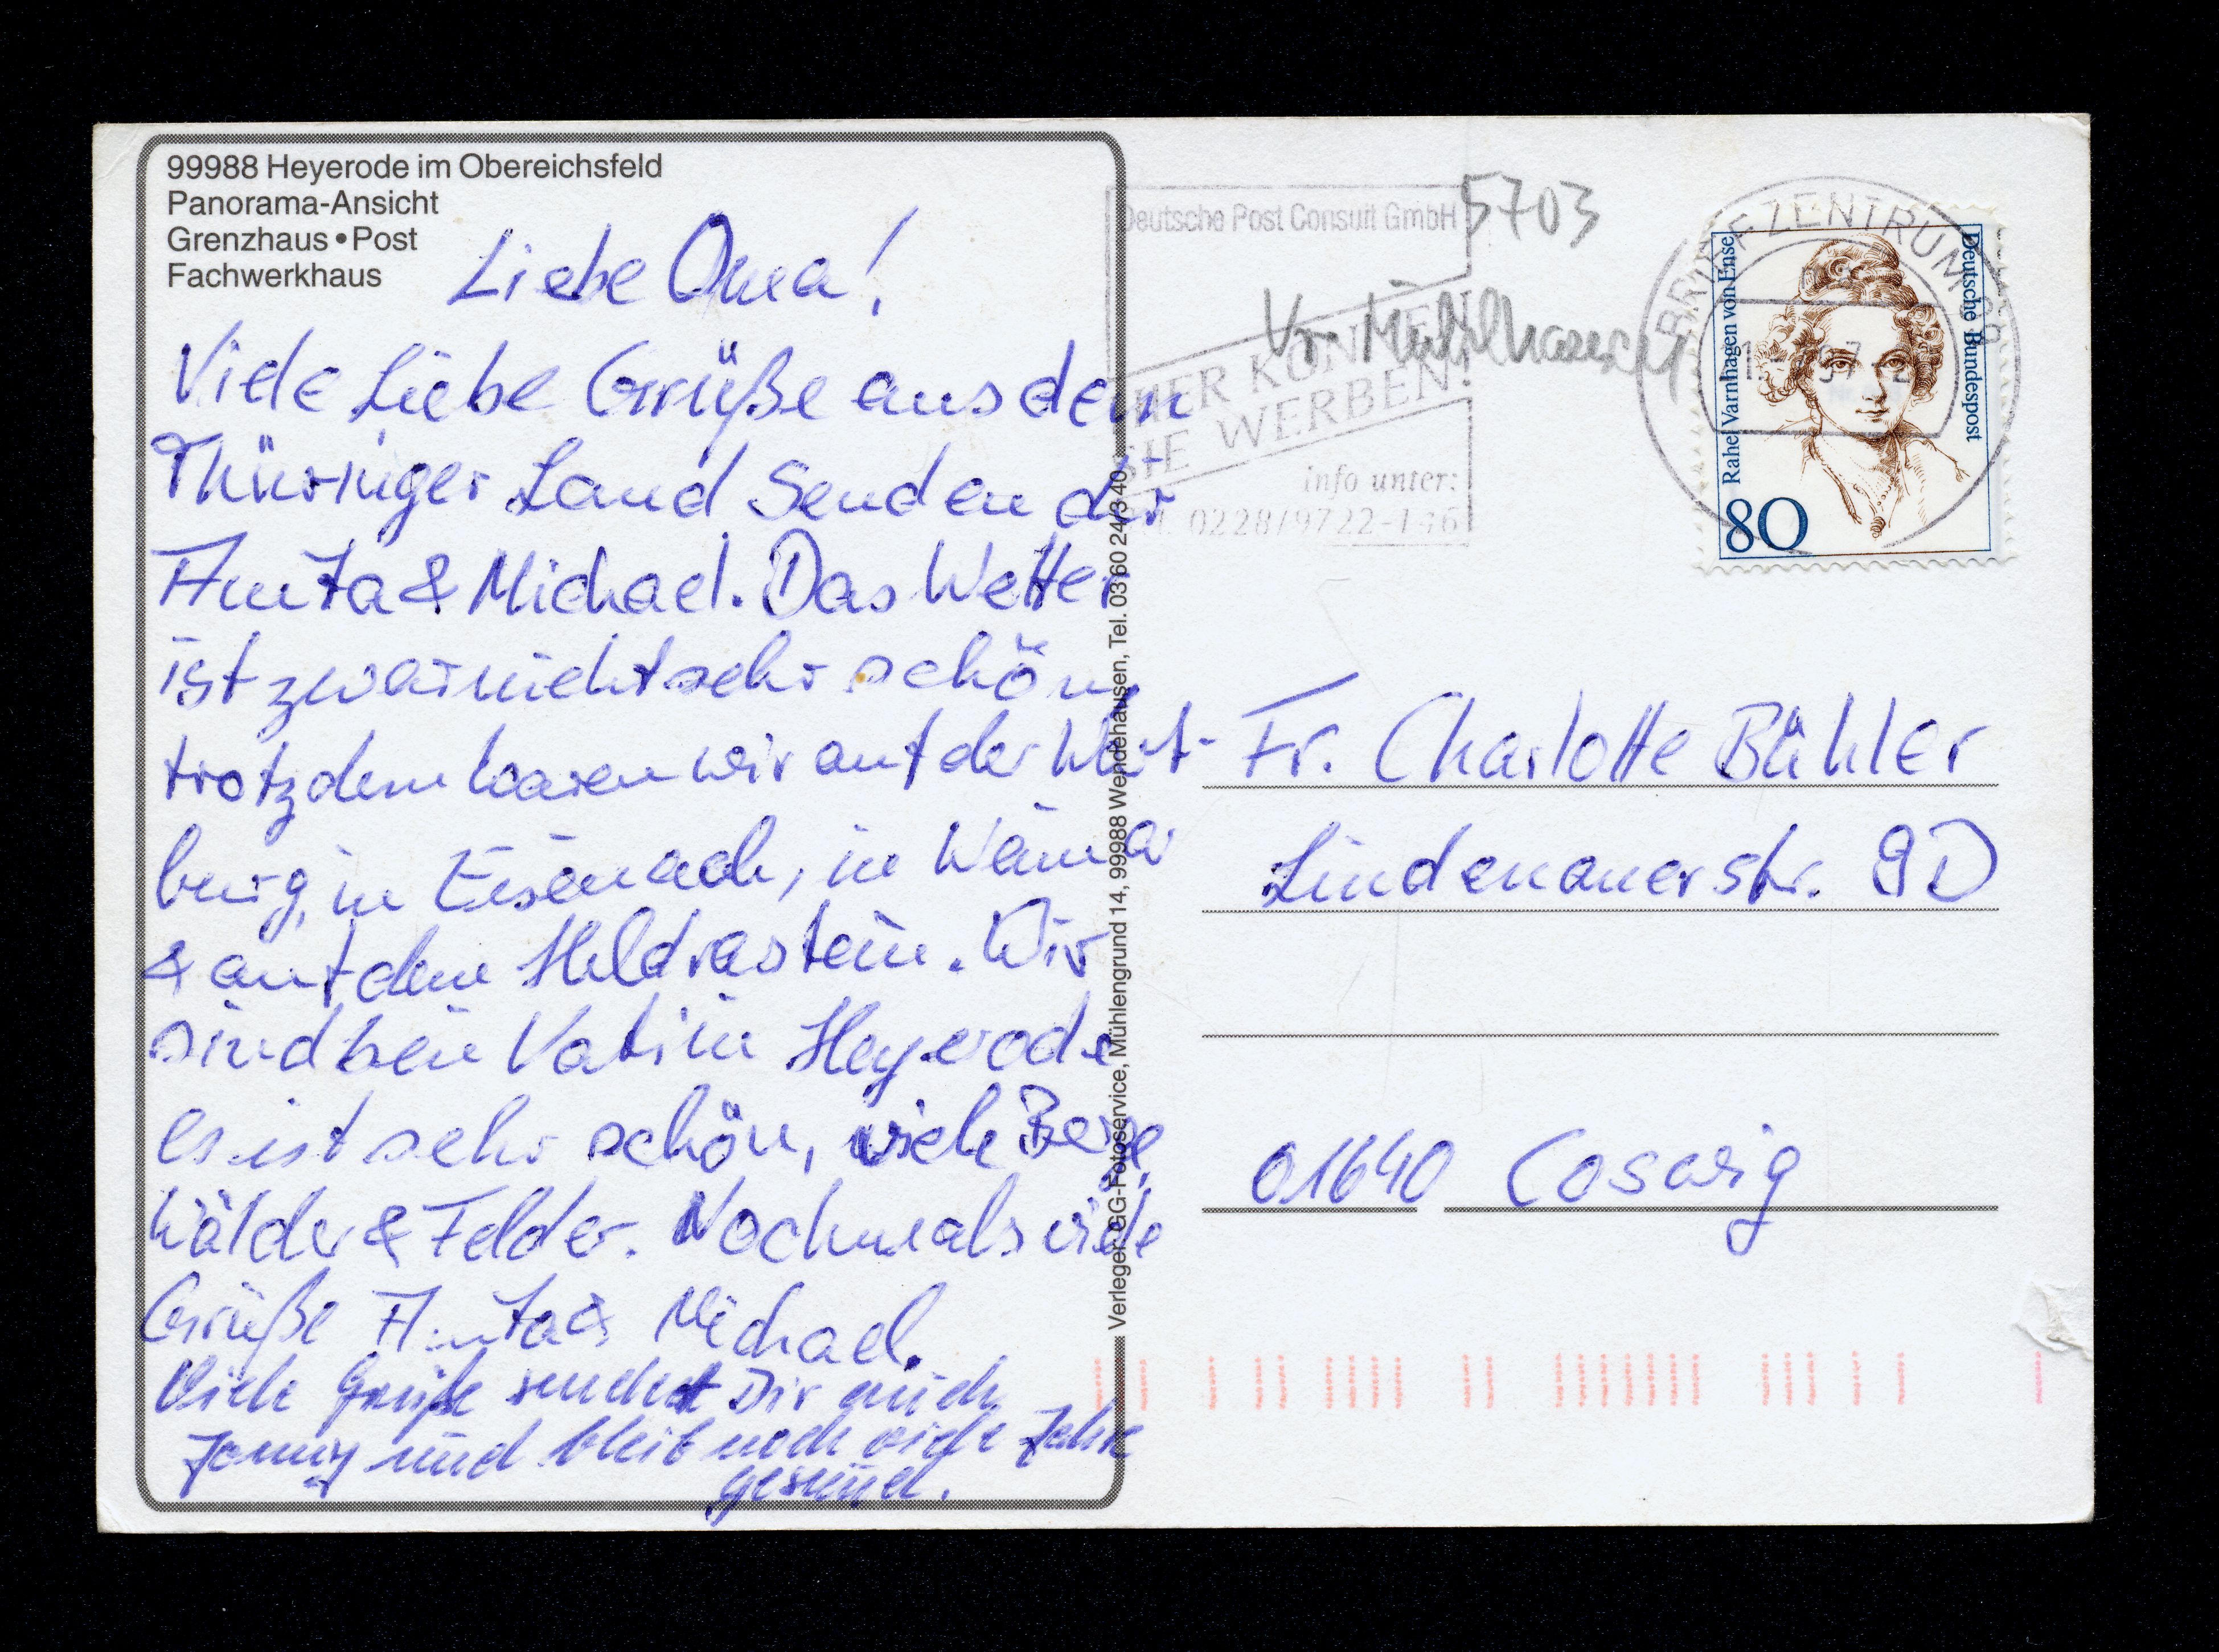 99988 Heyerode im Obereichsfeld
Panorama-Ansicht
Grenzhaus • Post
Fachwerkhaus
Liebe Oma!
Viele Liebe Grüße aus dem
Thüringer Land senden dir
Anita & Michael. Das Wetter
ist zwar nicht sehr schön,
trotzdem waren wir auf der Wart-
burg, in Eisenach, in Weimar
& auf dem Heldrastein. Wir
sind bein Vati in Heyerode
es ist sehr schön, viele Berge
Wälder & Felder. Nochmals viele
Grüße Anita & Michael.
Viele Grüße sendet Dir auch
und bleib noch viele Jahre
gesund.
Verleger: GG-Fotoservice, Mühlengrund 14, 99988 Wendehausen, Tel. 03 60 24/3 40
Deutsche Post Consult GmbH
HIER KÖNNEN
SIE WERBEN!
info unter:
0228/9722-146
5703
Mühlhausen
BRIEFZENTRUM 99
Rahel Varnhagen von Ense
Deutsche Bundespost
80
Fr. Charlotte Bühler
Lindenauerstr. 9D
01640 Coswig